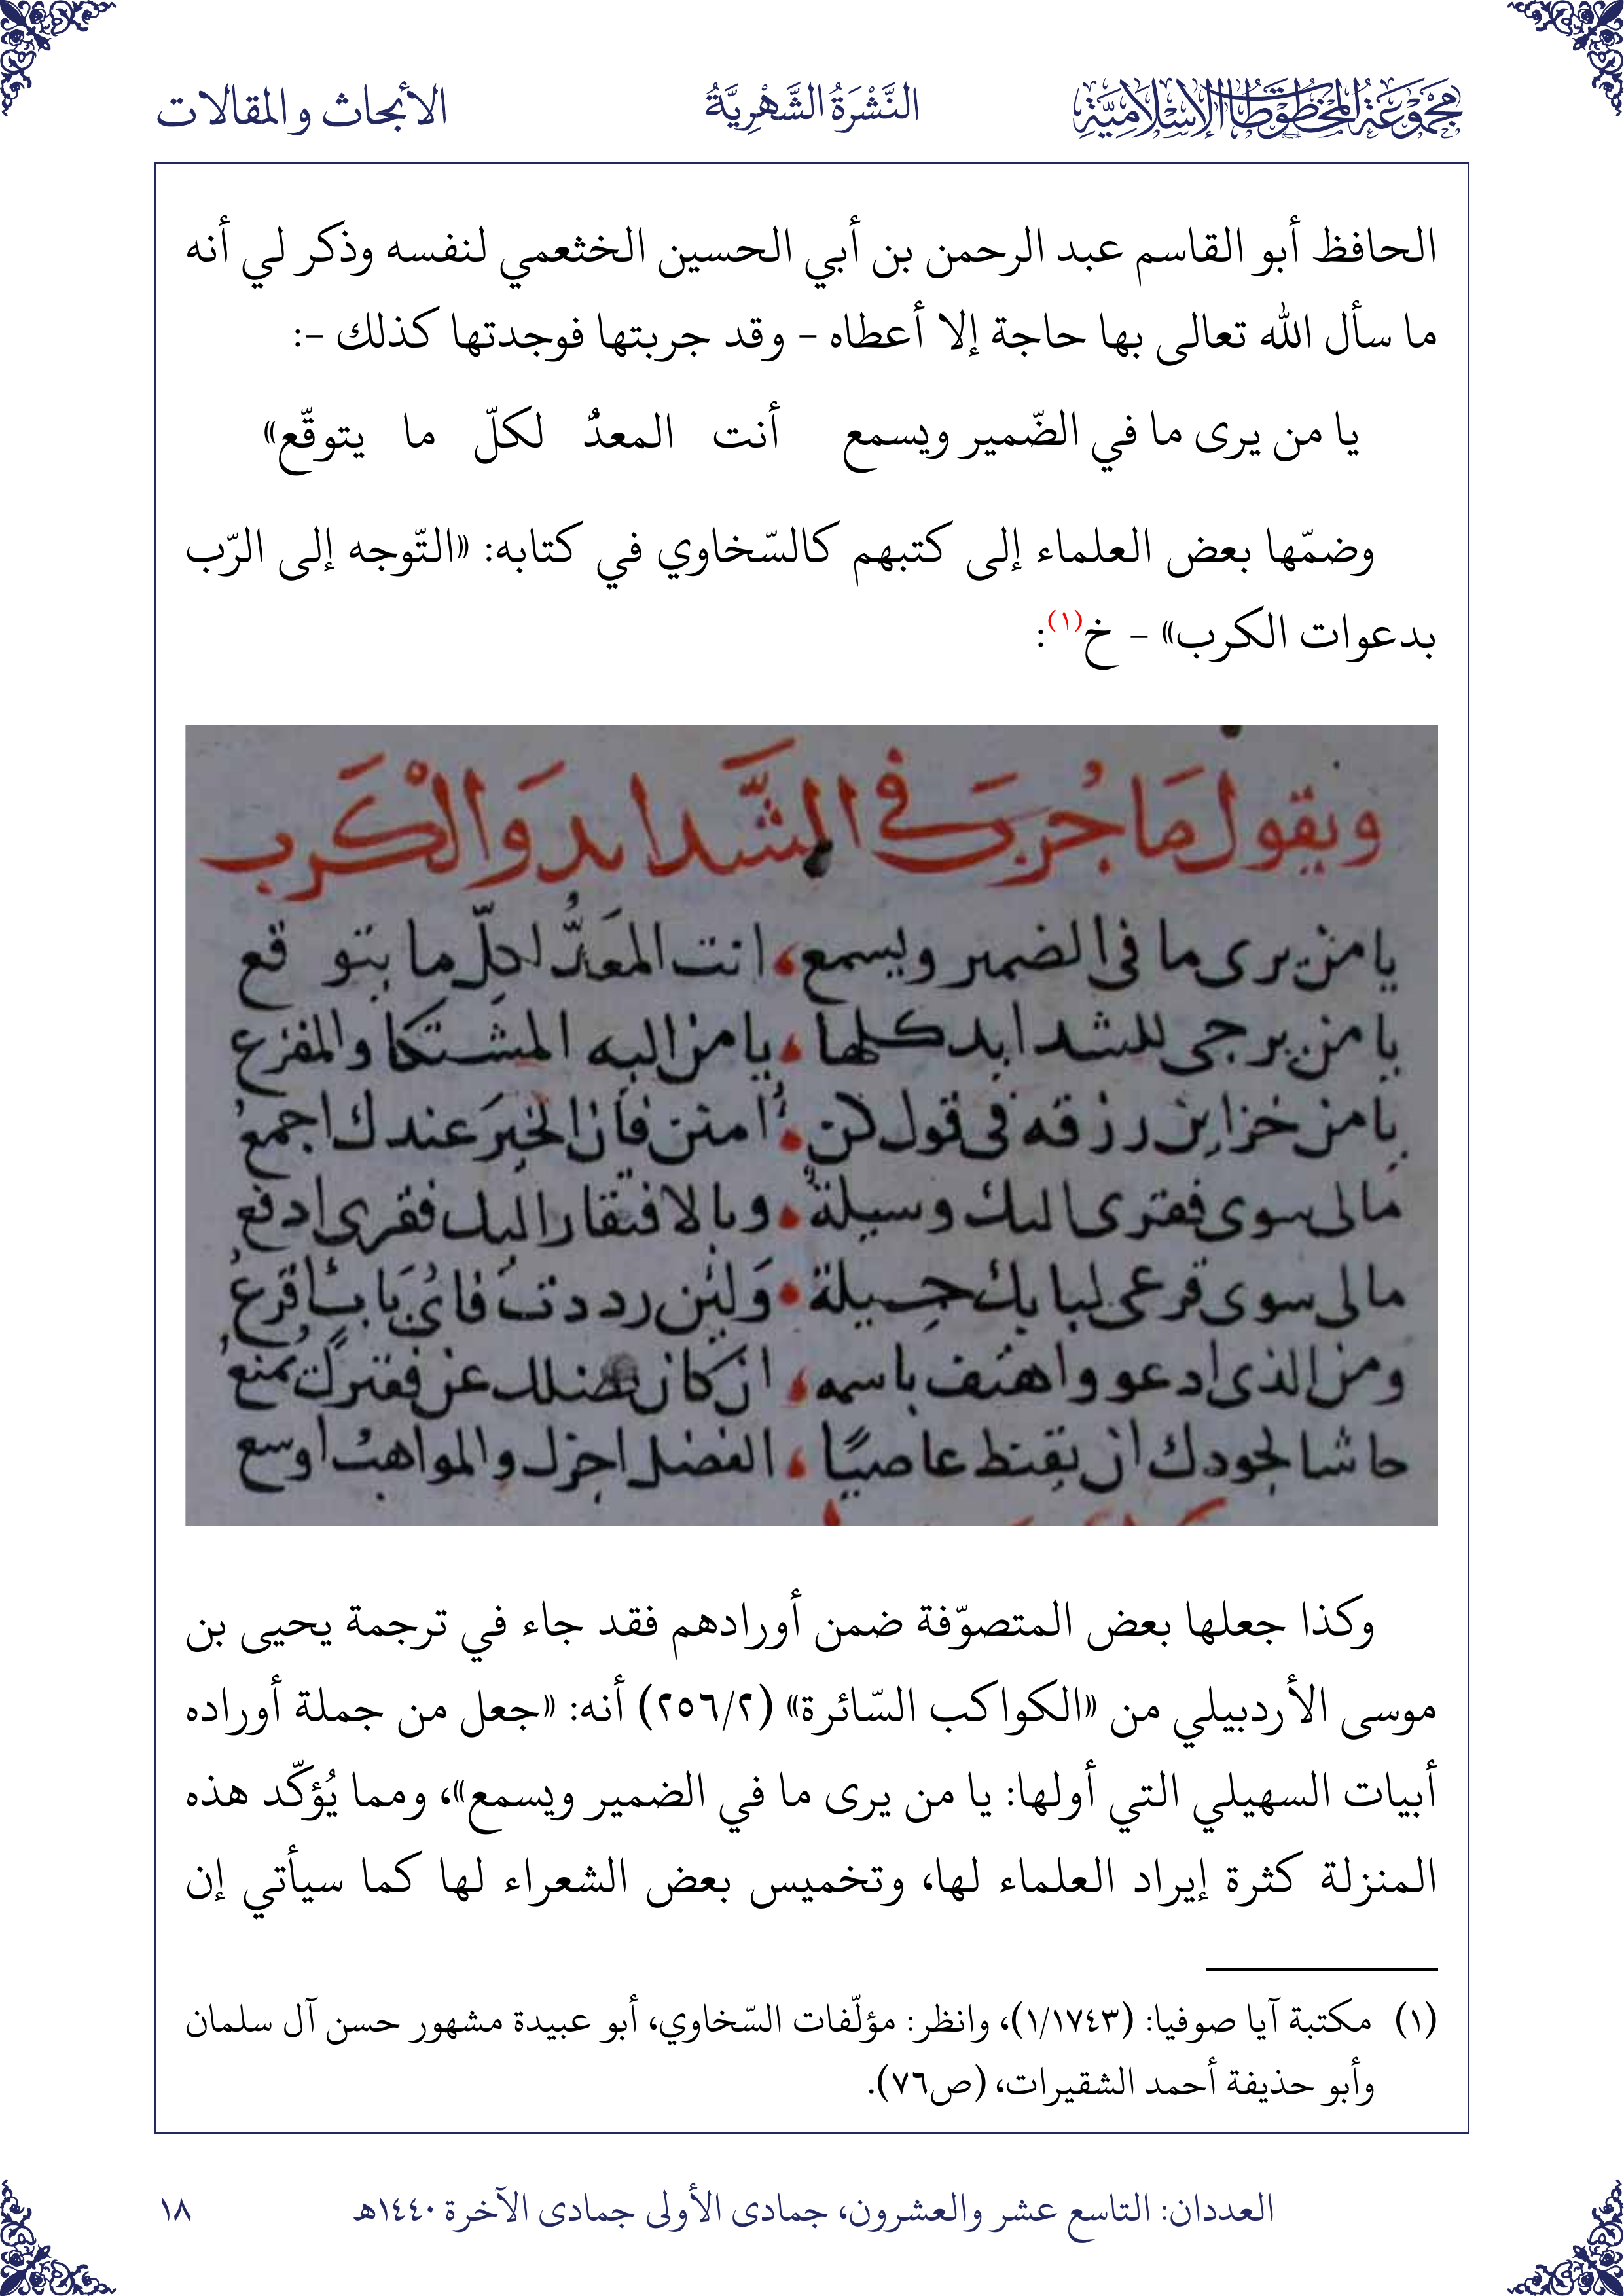 مجموعة المخطوطات الإسلامية
النَّشْرَةُ الشَّهْرِيَّةُ
الأبحاث والمقالات
الحافظ أبو القاسم عبد الرحمن بن أبي الحسين الخثعمي لنفسه وذكر لي أنه
ما سأل الله تعالى بها حاجة إلا أعطاه – وقد جربتها فوجدتها كذلك –:
يا من يرى ما في الضّمير ويسمع أنت المعدُّ لكلّ ما يتوقّع»
وضمّها بعض العلماء إلى كتبهم كالسّخاوي في كتابه: «التّوجه إلى الرّب
بدعوات الكرب» – خ(١):
ويقول مَا جُربَ في الشَّدايد وَالْكَرب
يا من يرى ما في الضمير ويسمع، انت المعَدُّ لكِلّ ما يتوقع
يا من يرجى للشدايد كلها، يا من اليه المشتكا والمفزع
يا من خزاين رزقه في قول كن، اُمنن فاَن الخيرَ عندك اجمع
مالى سوى فقرى اليك وسيلةٌ، وبالافتقار اليك فقرى ادفع
مالى سوى قرعى لبابك حِيلة، وَلئِن رددتُ فائُ بَابٍ اقرعُ
ومن الذى ادعو واهتف باسمه، ان كان فضلك عن فقيرك يمنعُ
حاشا لجودك ان يقنط عاصيًا، الفضل اجزل والمواهبُ اوسع
وكذا جعلها بعض المتصوّفة ضمن أورادهم فقد جاء في ترجمة يحيى بن
موسى الأردبيلي من «الكواكب السّائرة» (٢٥٦/٢) أنه: «جعل من جملة أوراده
أبيات السهيلي التي أولها: يا من يرى ما في الضمير ويسمع»، ومما يُؤكّد هذه
المنزلة كثرة إيراد العلماء لها، وتخميس بعض الشعراء لها كما سيأتي إن
(١) مكتبة آيا صوفيا: (١/١٧٤٣)، وانظر: مؤلّفات السّخاوي، أبو عبيدة مشهور حسن آل سلمان
وأبو حذيفة أحمد الشقيرات، (ص٧٦).
العددان: التاسع عشر والعشرون، جمادى الأولى جمادى الآخرة ١٤٤٠هـ
١٨